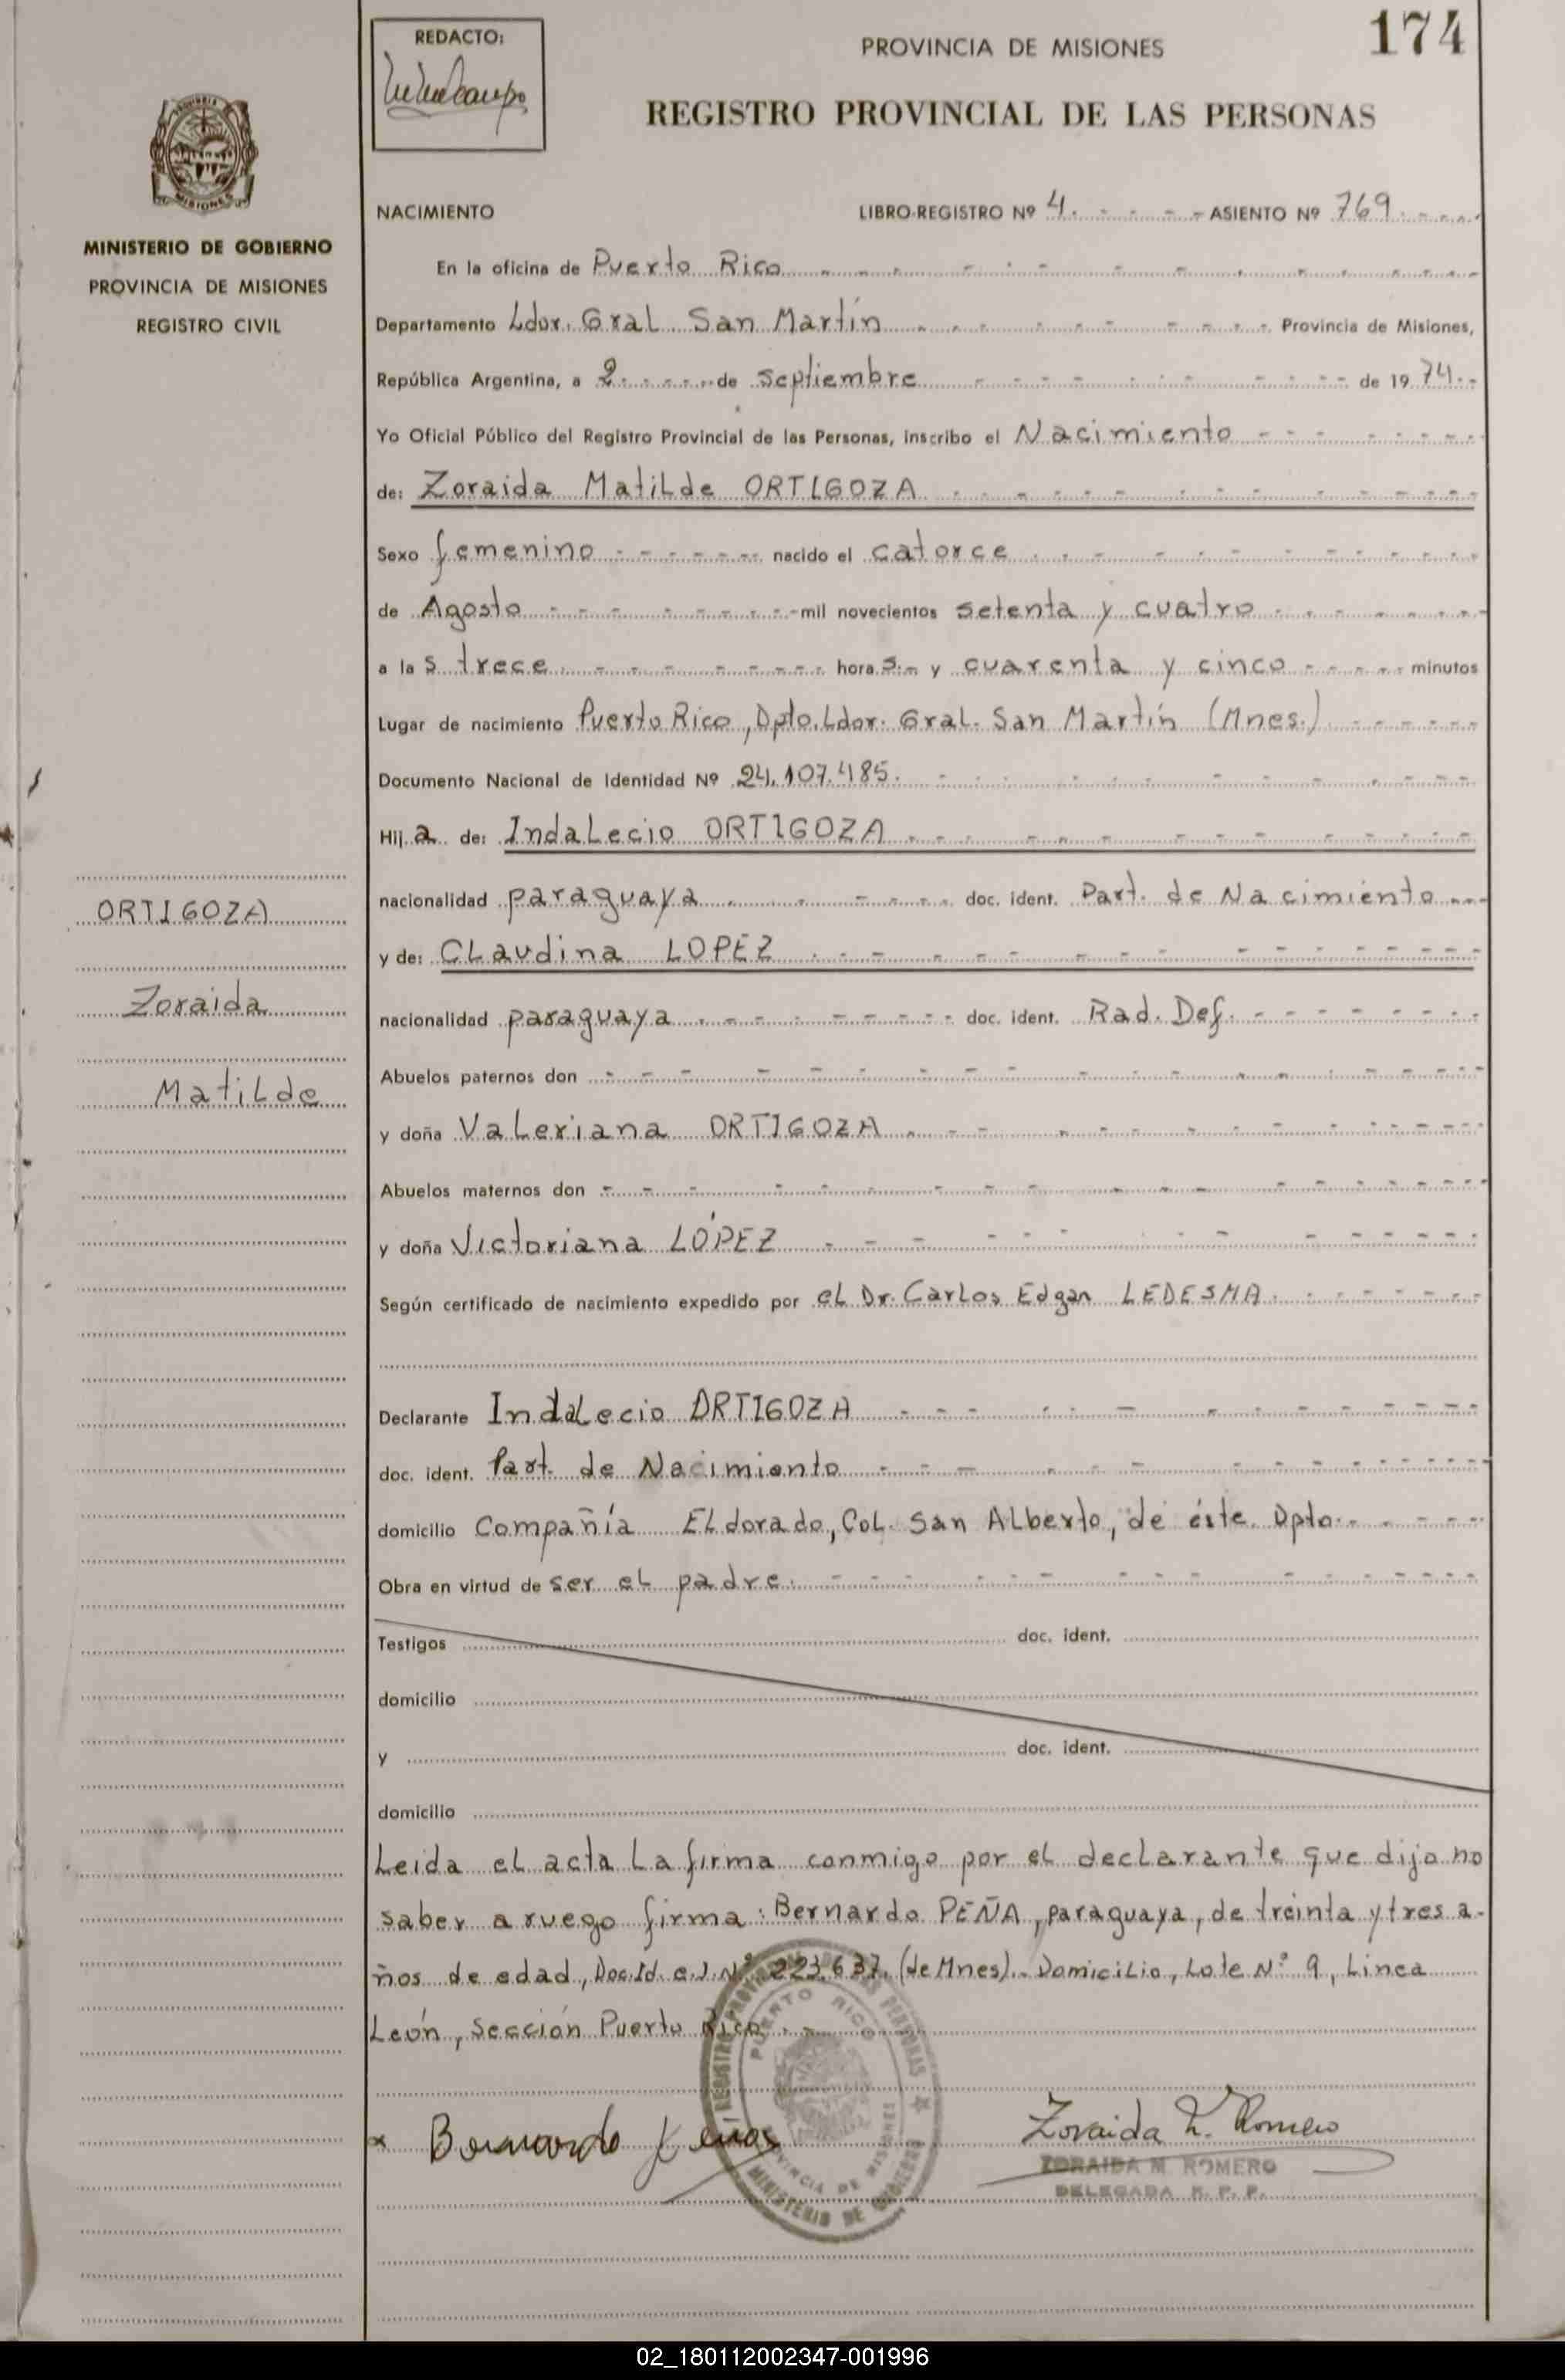 174
REDACTO:
PROVINCIA DE MISIONES
REGISTRO PROVINCIAL DE LAS PERSONAS
MISIONES
MINISTERIO DE GOBIERNO
PROVINCIA DE MISIONES
REGISTRO CIVIL
NACIMIENTO LIBRO-REGISTRO Nº 4. ASIENTO Nº 769.
En la oficina de Puerto Rico
Departamento Ldor. Gral San Martín Provincia de Misiones,
República Argentina, a 2 de septiembre de 1974.
Yo Oficial Público del Registro Provincial de las Personas, inscribo el Nacimiento
de: Zoraida Matilde ORTIGOZA
Sexo femenino nacido el catorce
de Agosto mil novecientos setenta y cuatro
a la s trece hora s. y cuarenta y cinco minutos
Lugar de nacimiento Puerto Rico, Dpto. Ldor. Gral. San Martín (Mnes.)
Documento Nacional de Identidad Nº 24.107.485.
Hij a de: Indalecio ORTIGOZA
nacionalidad paraguaya doc. ident. Part. de Nacimiento
y de: Claudina LOPEZ
nacionalidad paraguaya doc. ident. Rad. Def.
Abuelos paternos don
y doña Valeriana ORTIGOZA
Abuelos maternos don
y doña Victoriana LÓPEZ
Según certificado de nacimiento expedido por el Dr. Carlos Edgar LEDESMA.
Declarante Indalecio ORTIGOZA
doc. ident. Part. de Nacimiento
domicilio Compañía Eldorado, Col. San Alberto, de éste Dpto.
Obra en virtud de ser el padre.
Testigos doc. ident.
domicilio
y doc. ident.
domicilio
Leida el acta la firma conmigo por el declarante que dijo no
saber a ruego firma: Bernardo PEÑA, paraguaya, de treinta y tres a-
ños de edad, Doc. Id. c.I. Nº 223.637. (de Mnes). Domicilio, Lote Nº 9, Linea
León, sección Puerto Rico.
ORTIGOZA
Zoraida
Matilde
REGISTRO PROVINCIAL DE LAS PERSONAS
PUERTO RICO
PROVINCIA DE MISIONES
MINISTERIO DE GOBIERNO
Bernardo
Zoraida M. Romero
ZORAIDA M. ROMERO
DELEGADA R. P. P.
02_180112002347-001996